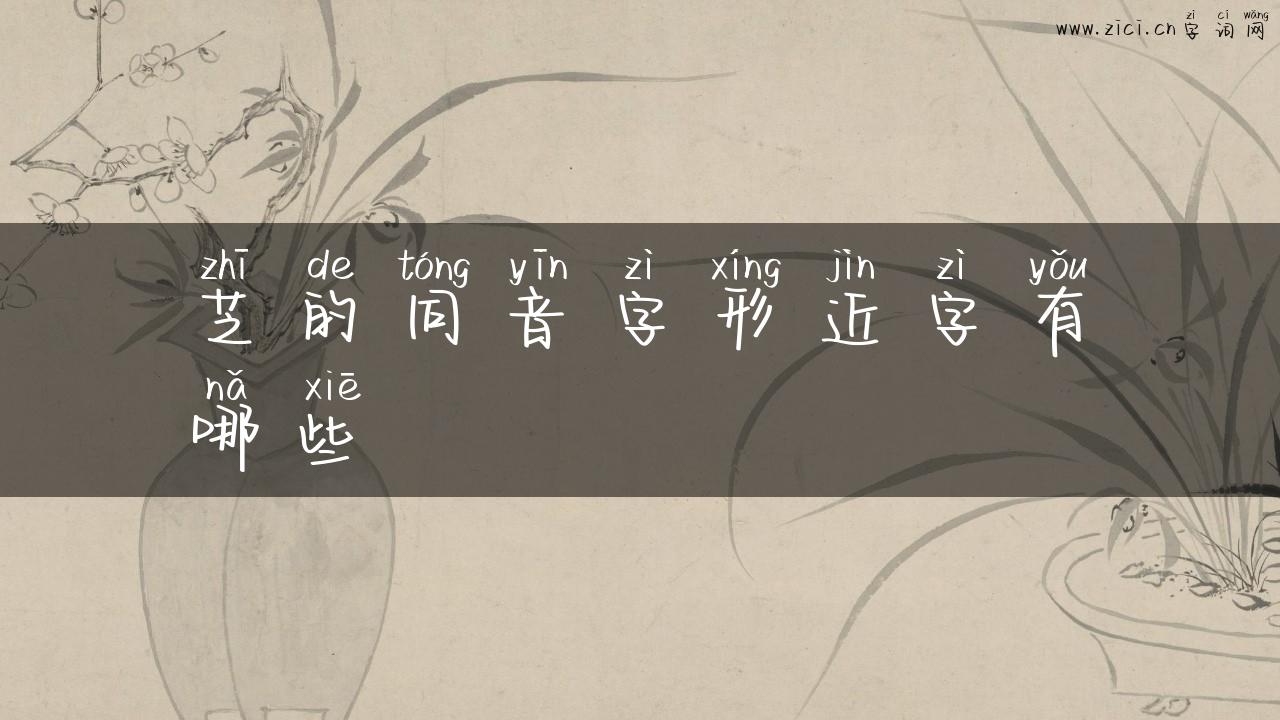 zì cí wǎng
www.zici.cn 字词网
zhī de tóng yīn zì xíng jìn zì yǒu
芝的同音字形近字有
nǎ xiē
哪些